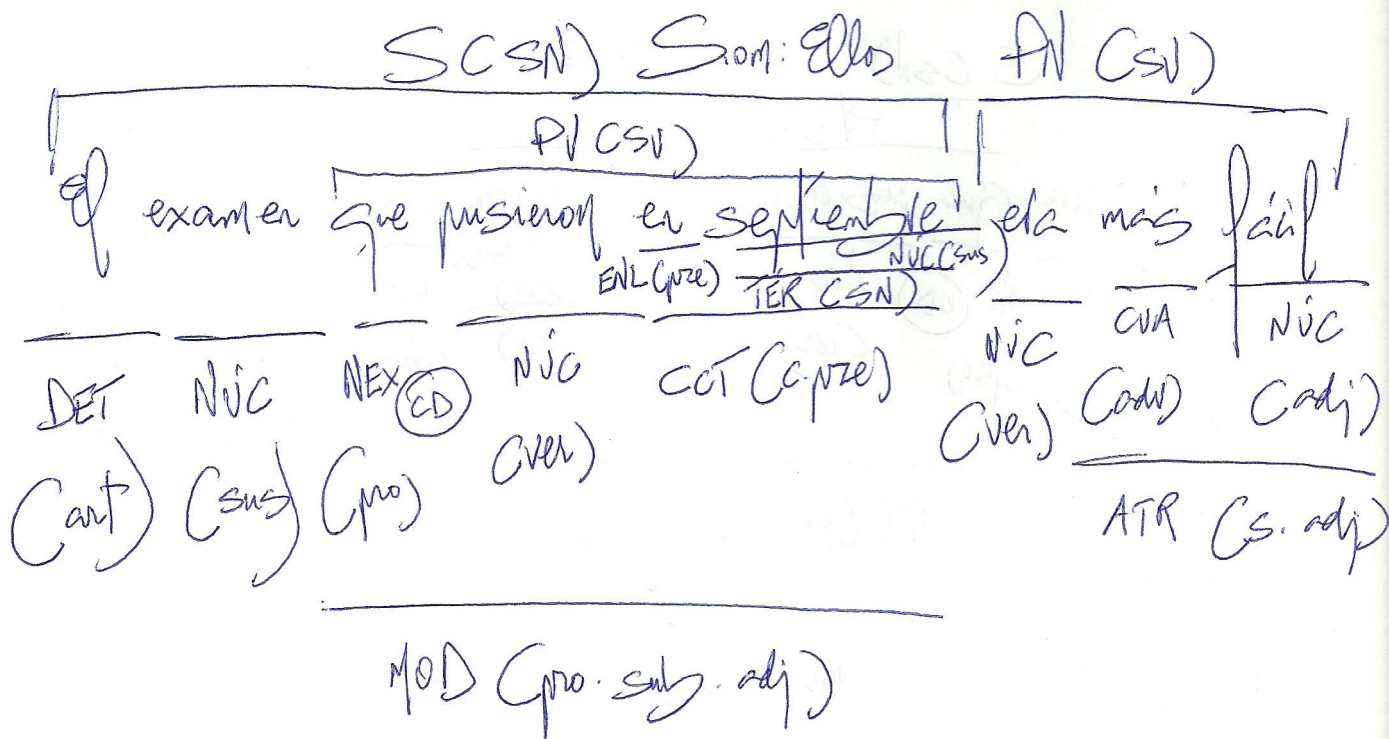 S (SN) S.om: Ellos PN (SV)
PV (SV)
El examen que pusieron en septiembre era más fácil
ENL (pre) NÚC (sus)
TÉR (SN)
DET NÚC NEX CD NÚC CCT (C.pre) NÚC CVA NÚC
(art) (sus) (pro) (ver) (ver) (adv) (adj)
ATR (S. adj)
MOD (pro. sub. adj)